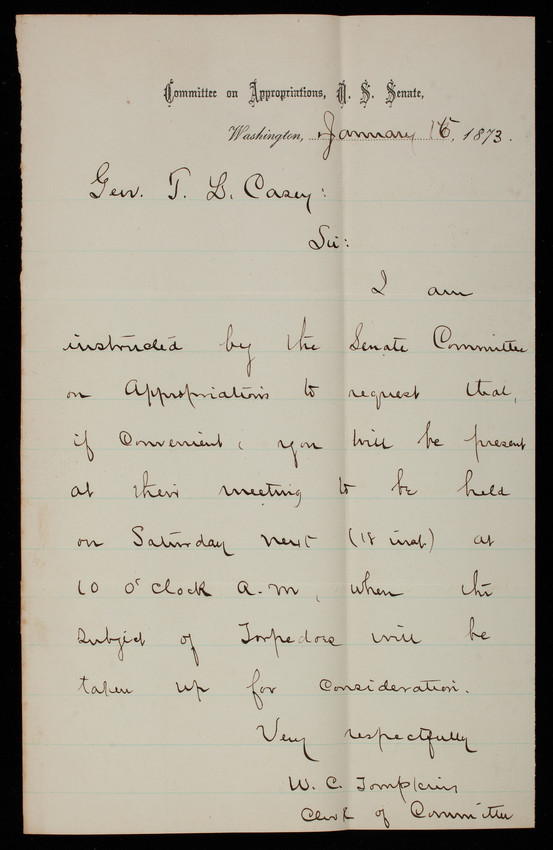 Committee on Appropriations, U. S. Senate,
Washington, January 16, 1873.
Gen. T. L. Casey:
Sir:
I am
instructed by the Senate Committee
on Appropriations to request that,
if convenient, you will be present
at their meeting to be held
on Saturday next (18 inst.) at
10 o'clock a.m., when the
subject of Torpedoes will be
taken up for consideration.
Very respectfully
W. C. Tompkins
Clerk of Committee